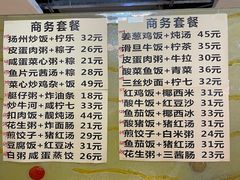 商务套餐
扬州炒饭+柠茶 32元
皮蛋肉粥+粽 26元
咸蛋菜心粥+粽 23元
鱼片元茜汤+粽 28元
菜心炒鸡杂+饭 49元
艇仔粥+炸油条 18元
炒牛河+咸柠七 33元
扣肉饭+靓炖汤 44元
花生粥+炸面肠 21元
煎饺子+猪红汤 29元
豆腐饭+红豆冰 31元
白粥 咸蛋蒸饺 26元
商务套餐
姜葱鸡饭+炖汤 45元
滑旦牛饭+柠茶 35元
皮蛋肉粥+牛拉 30元
酸菜鱼饭+青菜 36元
三丝炒面+柠七 31元
红鸡饭+椰西米 31元
酸牛饭+红豆沙 31元
鱼茄饭+椰汁冰 31元
酸猪饭+猪红汤 31元
煎饺子+白米粥 24元
鱼茄饭+猪红汤 31元
花生粥+三酱肠 24元